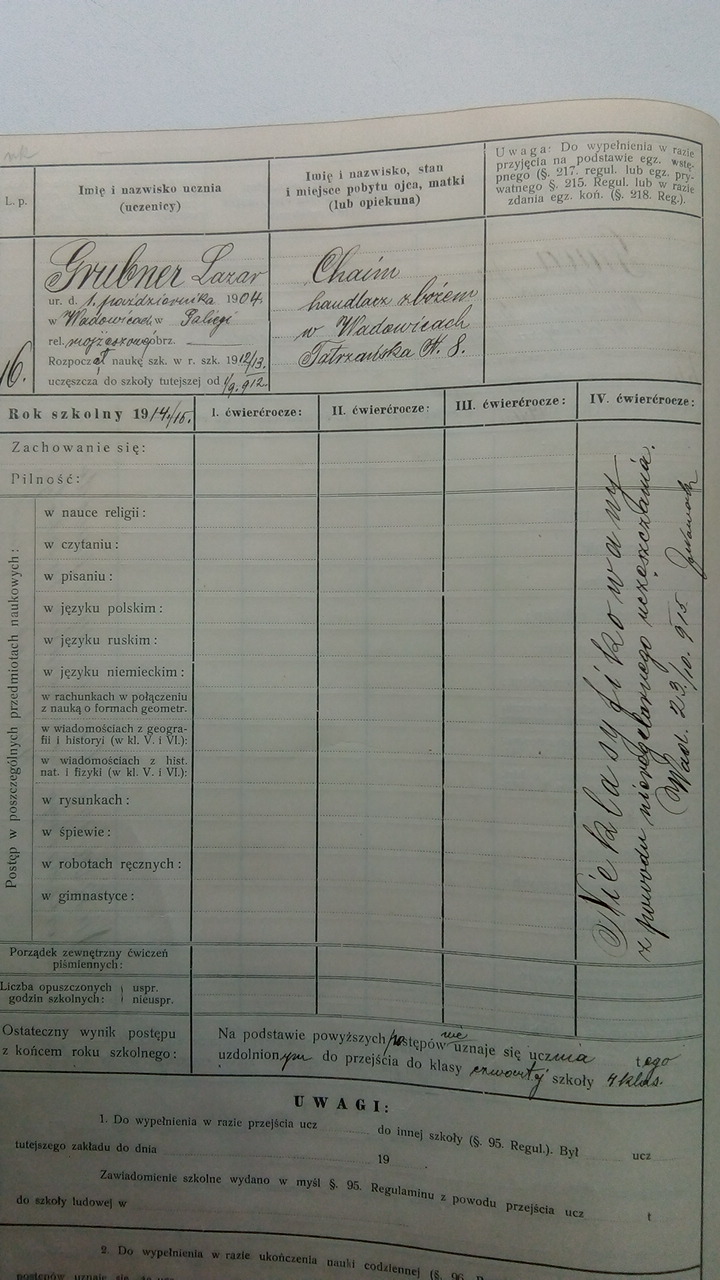 L. p.
Imię i nazwisko ucznia
(uczenicy)
Imię i nazwisko, stan
i miejsce pobytu ojca, matki
(lub opiekuna)
Uwaga: Do wypełnienia w razie
przyjęcia na podstawie egz. wstę-
pnego (§. 217. regul. lub egz. pry-
watnego §. 215. Regul. lub w razie
zdania egz. koń. (§. 218. Reg.).
16.
Grubner Lazar
ur. d. 1. października 1904.
w Wadowicach w Galicyi
rel. mojżeszowej obrz.
Rozpoczął naukę szk. w r. szk. 1912/13.
uczęszcza do szkoły tutejszej od 1/9. 912.
Chaim
handlarz zbożem
w Wadowicach
Tatrzańska N. 8.
Rok szkolny 1914/15.
I. ćwierćrocze:
II. ćwierćrocze:
III. ćwierćrocze:
IV. ćwierćrocze:
Zachowanie się:
Pilność:
Postęp w poszczególnych przedmiotach naukowych:
w nauce religii:
w czytaniu:
w pisaniu:
w języku polskim:
w języku ruskim:
w języku niemieckim:
w rachunkach w połączeniu
z nauką o formach geometr.
w wiadomościach z geogra-
fii i historyi (w kl. V. i VI.):
w wiadomościach z hist.
nat. i fizyki (w kl. V. i VI.):
w rysunkach:
w śpiewie:
w robotach ręcznych:
w gimnastyce:
Nieklasyfikowany
z powodu nieregularnego uczęszczania.
Wad. 23/10. 915
Porządek zewnętrzny ćwiczeń
piśmiennych:
Liczba opuszczonych
godzin szkolnych:
uspr.
nieuspr.
Ostateczny wynik postępu
z końcem roku szkolnego:
Na podstawie powyższych postępów nie uznaje się ucznia tego
uzdolnionym do przejścia do klasy czwartej szkoły 4 klas.
UWAGI:
1. Do wypełnienia w razie przejścia ucz do innej szkoły (§. 95. Regul.). Był ucz
tutejszego zakładu do dnia 19
Zawiadomienie szkolne wydano w myśl §. 95. Regulaminu z powodu przejścia ucz t
do szkoły ludowej w
2. Do wypełnienia w razie ukończenia nauki codziennej (§. 96.
postępów uznaje się